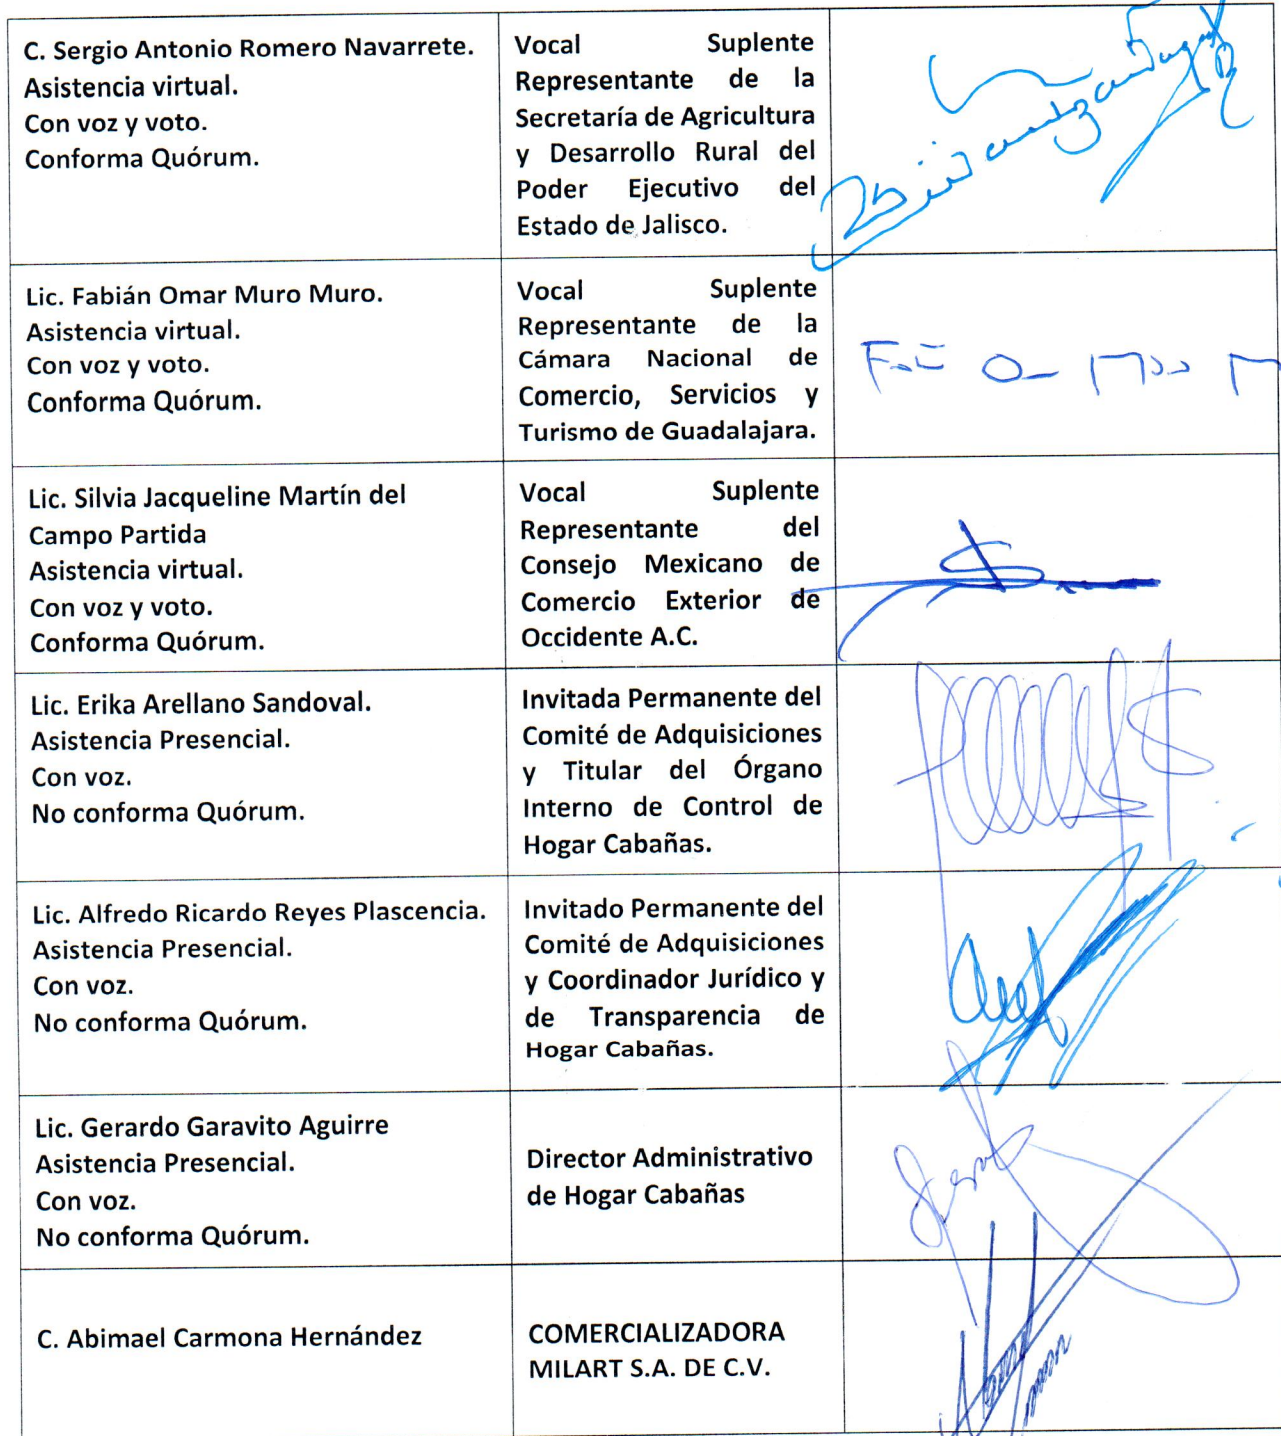 C. Sergio Antonio Romero Navarrete.
Asistencia virtual.
Con voz y voto.
Conforma Quórum.
Vocal Suplente
Representante de la
Secretaría de Agricultura
y Desarrollo Rural del
Poder Ejecutivo del
Estado de Jalisco.
Lic. Fabián Omar Muro Muro.
Asistencia virtual.
Con voz y voto.
Conforma Quórum.
Vocal Suplente
Representante de la
Cámara Nacional de
Comercio, Servicios y
Turismo de Guadalajara.
Lic. Silvia Jacqueline Martín del
Campo Partida
Asistencia virtual.
Con voz y voto.
Conforma Quórum.
Vocal Suplente
Representante del
Consejo Mexicano de
Comercio Exterior de
Occidente A.C.
Lic. Erika Arellano Sandoval.
Asistencia Presencial.
Con voz.
No conforma Quórum.
Invitada Permanente del
Comité de Adquisiciones
y Titular del Órgano
Interno de Control de
Hogar Cabañas.
Lic. Alfredo Ricardo Reyes Plascencia.
Asistencia Presencial.
Con voz.
No conforma Quórum.
Invitado Permanente del
Comité de Adquisiciones
y Coordinador Jurídico y
de Transparencia de
Hogar Cabañas.
Lic. Gerardo Garavito Aguirre
Asistencia Presencial.
Con voz.
No conforma Quórum.
Director Administrativo
de Hogar Cabañas
C. Abimael Carmona Hernández
COMERCIALIZADORA
MILART S.A. DE C.V.